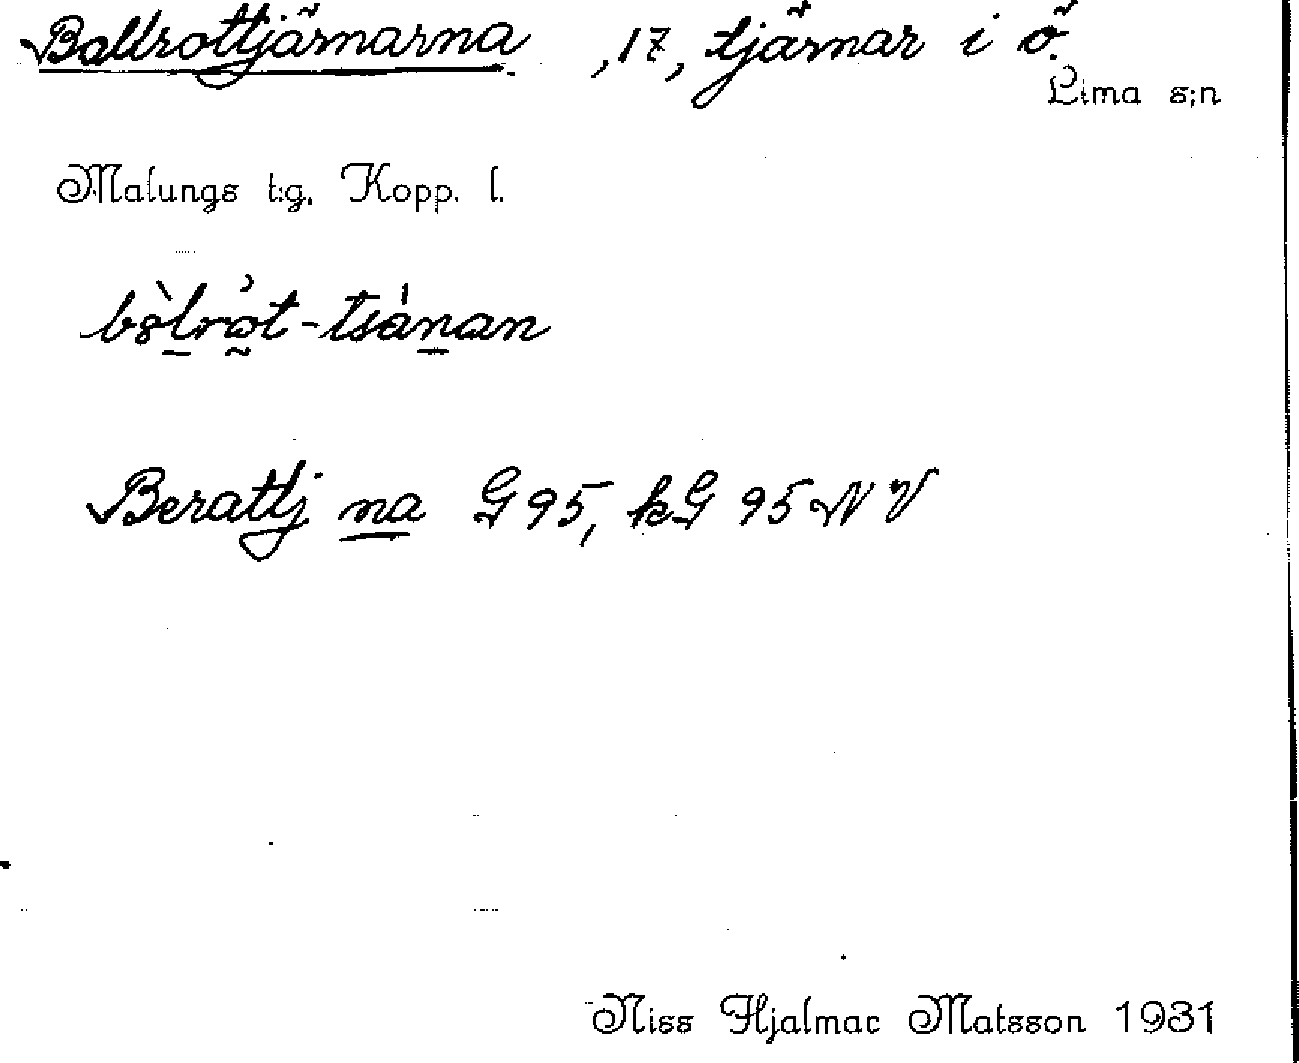 Balkrottjärnarna , 17, tjärnar i ö.
Lima s;n
Malungs t:g. Kopp. l.
Berattj na G 95, kG 95 N V
Niss Hjalmar Matsson 1931